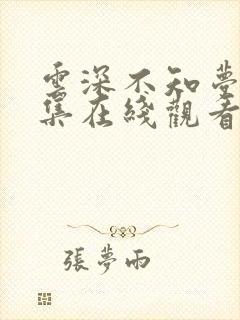 雲深不知夢
集在綫觀看
張夢雨